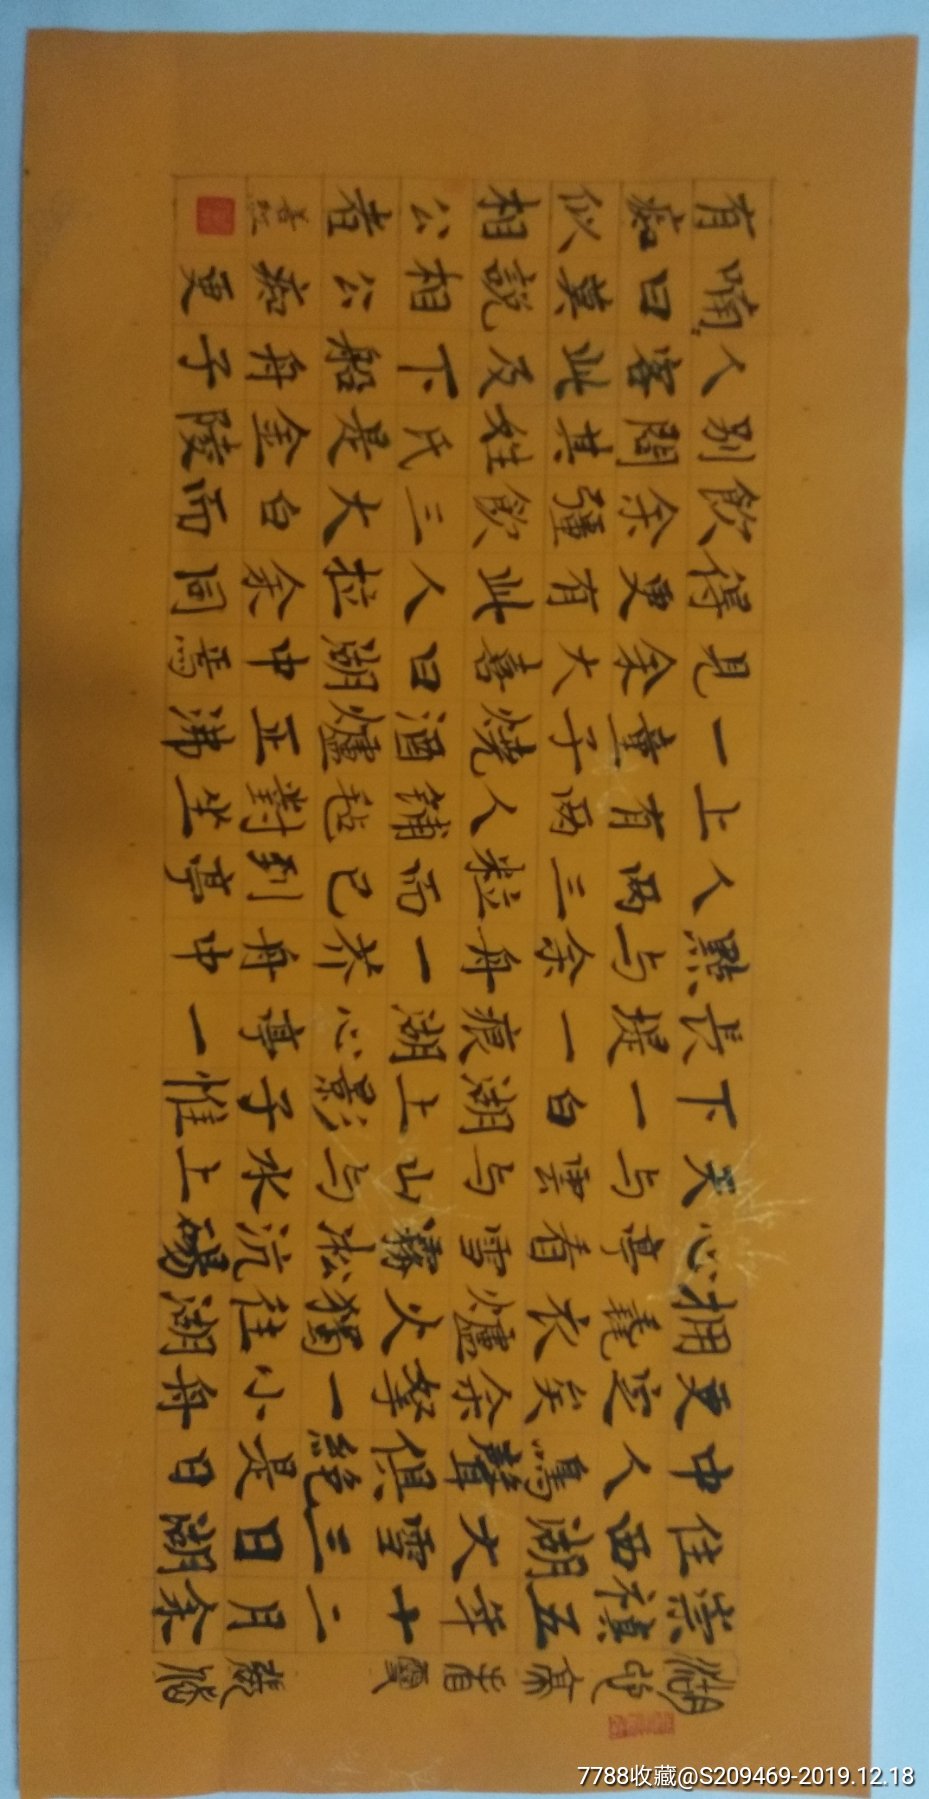 湖心亭看雪 張岱
崇禎五年十二月余
住西湖大雪三日湖
中人鳥聲俱絕是日
更定矣余拏一小舟
拥毳衣爐火獨往湖
心亭看雪霧凇沆碭
天与雲与山与水上
下一白湖上影子惟
長堤一痕湖心亭一
點与余舟一芥舟中
人两三粒而已到亭
上有两人鋪毡對坐
一童子燒酒爐正沸
見余大喜曰湖中焉
得更有此人拉余同
飲余彊飲三大白而
别問其姓氏是金陵
人客此及下船舟子
喃々曰莫說相公痴更
有痴似相公者
7788收藏@S209469-2019.12.18